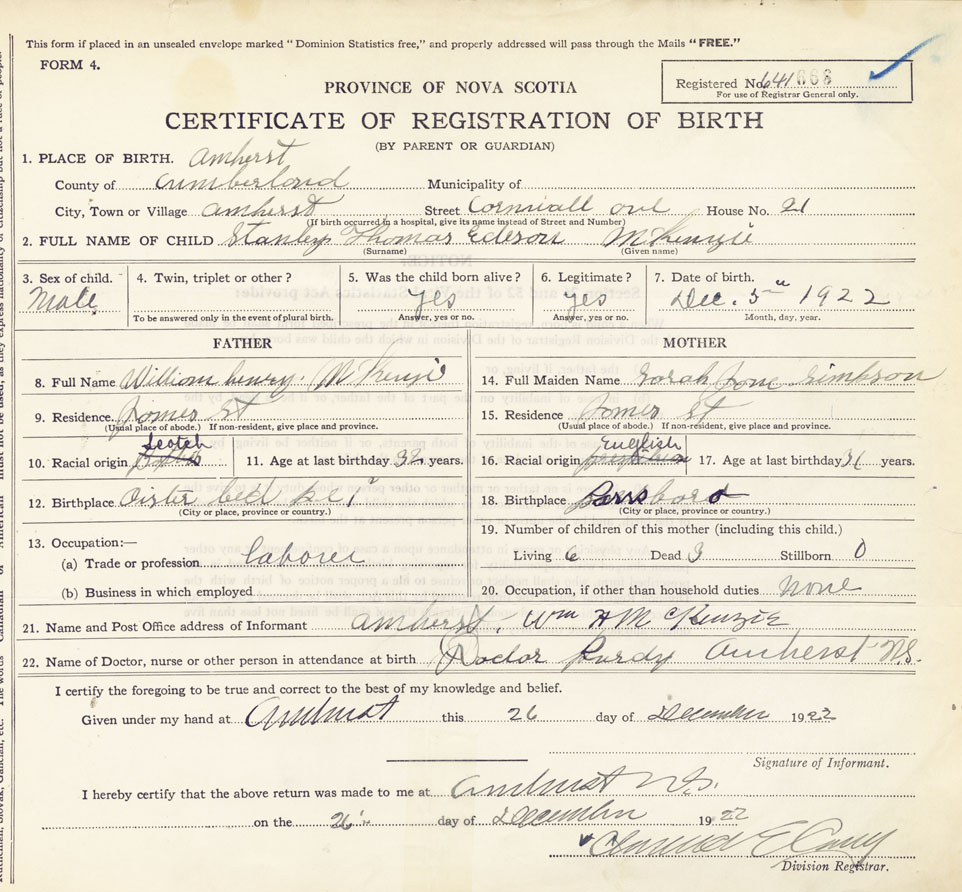 This form if placed in an unsealed envelope marked "Dominion Statistics free," and properly addressed will pass through the Mails "FREE."
FORM 4.
Registered No. 641 668
For use of Registrar General only.
PROVINCE OF NOVA SCOTIA
CERTIFICATE OF REGISTRATION OF BIRTH
(BY PARENT OR GUARDIAN)
1. PLACE OF BIRTH. Amherst
County of Cumberland Municipality of
City, Town or Village Amherst Street Cornwall ave House No. 21
(If birth occurred in a hospital, give its name instead of Street and Number)
2. FULL NAME OF CHILD Stanley Thomas Ederson McKenzie
(Surname) (Given name)
3. Sex of child. 4. Twin, triplet or other? 5. Was the child born alive? 6. Legitimate? 7. Date of birth.
Male Yes yes Dec. 5th 1922
To be answered only in the event of plural birth. Answer, yes or no. Answer, yes or no. Month, day, year.
FATHER MOTHER
8. Full Name William henry McKenzie 14. Full Maiden Name Sarah Jane Simpson
9. Residence James St 15. Residence James St
(Usual place of abode.) If non-resident, give place and province. (Usual place of abode.) If non-resident, give place and province.
Scotch English
10. Racial origin 11. Age at last birthday 32 years. 16. Racial origin 17. Age at last birthday 31 years.
12. Birthplace Oister bed p e i 18. Birthplace Parrsboro
(City or place, province or country.) (City or place, province or country.)
13. Occupation:— 19. Number of children of this mother (including this child.)
(a) Trade or profession laborer Living 6 Dead 3 Stillborn 0
(b) Business in which employed 20. Occupation, if other than household duties None
21. Name and Post Office address of Informant Amherst, Wm H McKenzie
22. Name of Doctor, nurse or other person in attendance at birth Doctor Purdy Amherst N.S.
I certify the foregoing to be true and correct to the best of my knowledge and belief.
Given under my hand at Amherst this 26 day of December 1922
Signature of Informant.
I hereby certify that the above return was made to me at Amherst N.S.
on the 26th day of December 1922
Division Registrar.